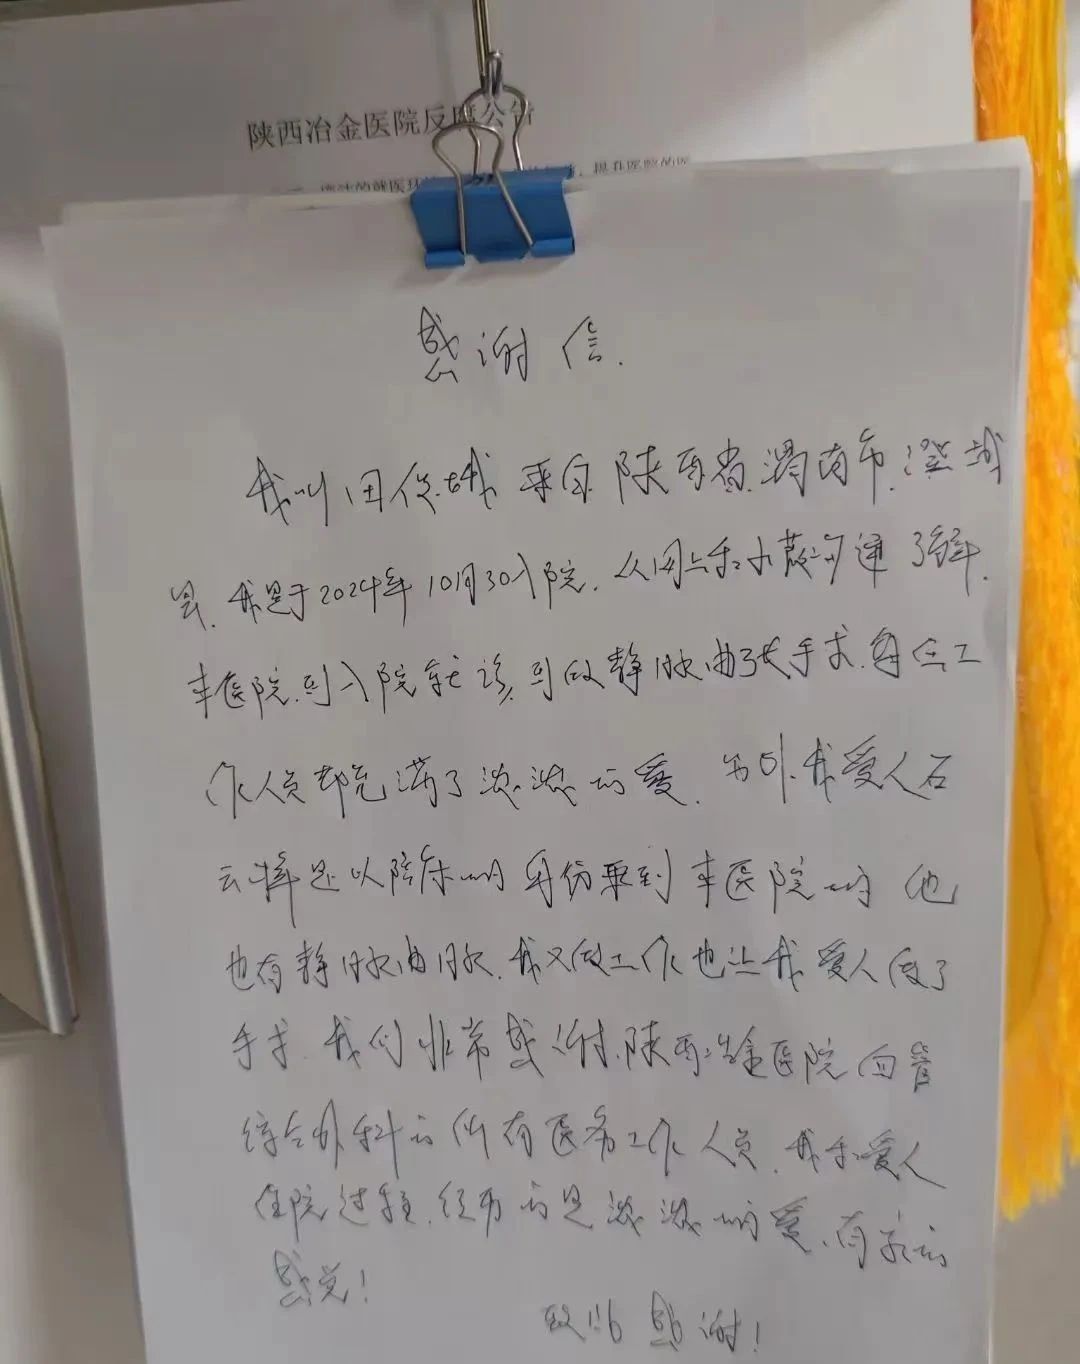 陕西冶金医院反
感谢信.
我叫田俊 来自陕西省渭南市.澄城
县.我是于2024年10月30入院.从网上和小 沟通了解.
本医院.到入院就诊.到做静脉曲张手术.每位工
作人员都充满了浓浓的爱.另外.我爱人石
云 是以陪床的身份来到本医院的 他
也有静脉曲脉.我又做工作也让我爱人做了
手术.我们非常感谢.陕西冶金医院血管
综合外科的所有医务工作人员.我和爱人
住院过程.经历的是浓浓的爱.有家的
感觉!
致以感谢!